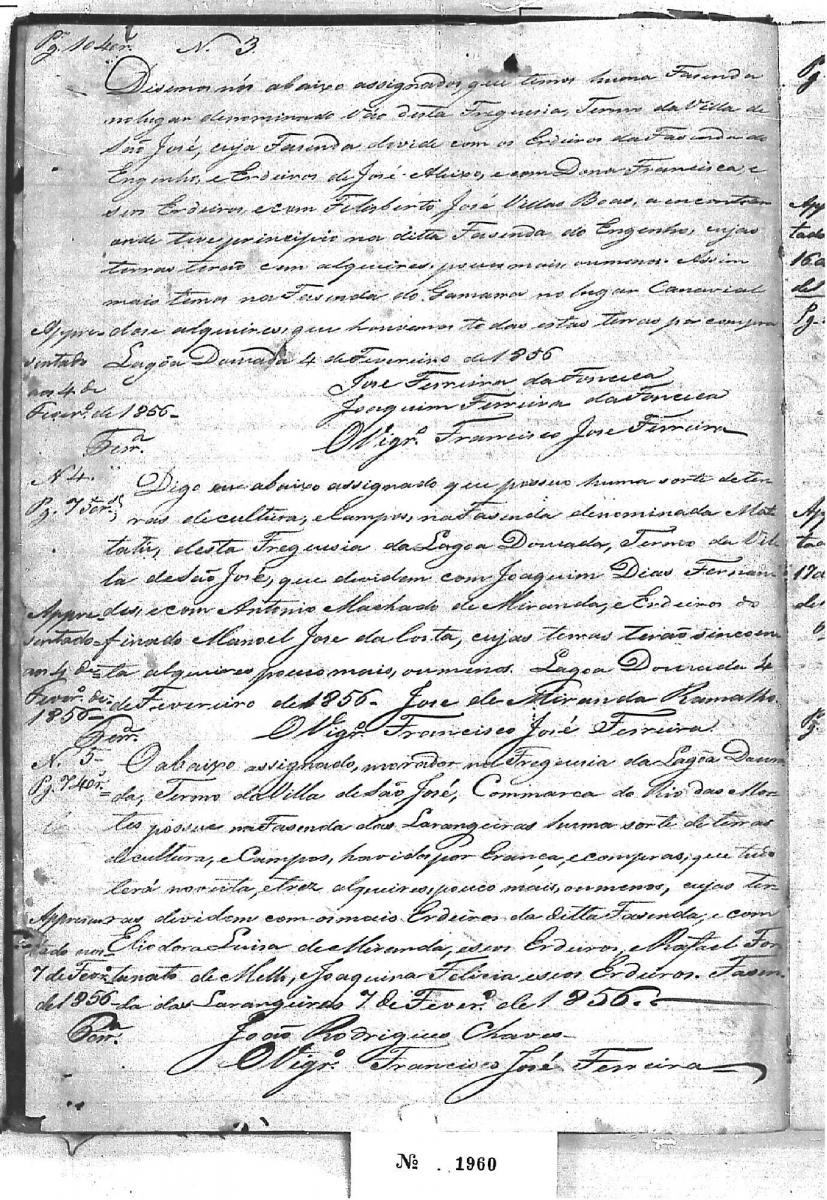 Pg. 1040r.
N. 3.
Disemos nós abaixo assignados que temos huma Fasenda
no lugar denominado Vão desta Freguesia, Termo da Villa de
São José, cuja Fasenda devide com os Erdeiros da Fasenda do
Engenho, e Erdeiros de José Aleixo, e com Dona Francisca, e
seos Erdeiros, e com Felisberto José Villas Boas, a encontrar
onde teve principio na ditta Fasenda do Engenho, cujas
terras terão cem alqueires, pouco mais, ou menos. Assim
mais temos na Fasenda do Gamarra no lugar Canavial
dose alqueires, que houvemos todas estas terras por compra
Lagôa Dourada 4 de Fevereiro de 1856
Appre-
sentado
aos 4 de
Feverº. de 1856-
Ferrª.
José Ferreira da Fonceca
Joaquim Ferreira da Fonceca
O Vigrº. Francisco José Ferreira
N 4.
Digo eu abaixo assignado que possuo huma sorte de ter-
ras de cultura, e Campos, na Fasenda denominada Ma-
tatú, desta Freguesia da Lagôa Dourada, Termo da Vil-
la de São José, que devidem com Joaquim Dias Fernan-
des, e com Antonio Machado de Miranda, e Erdeiros do
finado Manoel José da Costa, cujas terras terão sincoen-
ta alqueires pouco mais, ou menos. Lagôa Dourada 4
de Fevereiro de 1856- José de Miranda Ramalho.
Appre-
sentado
aos 4 de
Feverº. de
1856-
Ferrª.
O Vigrº. Francisco José Ferreira
N. 5-
Pg. 740r.
O abaixo assignado, morador na Freguesia da Lagôa Doura-
da, Termo da Villa de São José, Commarca do Rio das Mor-
tes possue na Fasenda das Larangeiras huma sorte de terras
de cultura, e Campos, havidas por Erança, e compras, que tudo
terá noventa, e trez alqueires, pouco mais, ou menos, cujas ter-
ras devidem com os mais Erdeiros da ditta Fasenda, e com
Eliodora Luisa de Miranda, e seos Erdeiros, e Rafael For-
tunato de Mello, e Joaquina Felicia e seos Erdeiros. Fasen-
da das Larangeiras 7 de Feverº. de 1856.
Appresen-
tado aos
7 de Feverº
de 1856-
Ferrª.
João Rodrigues Chaves-
O Vigrº. Francisco José Ferreira
Nº . 1960